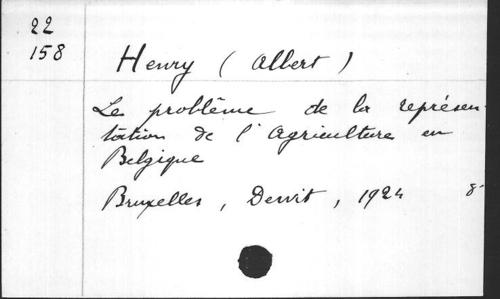 22
158
Henry (Albert)
Le problème de la représen-
tation de l'Agriculture en
Belgique
Bruxelles, Dewit, 1924 8°